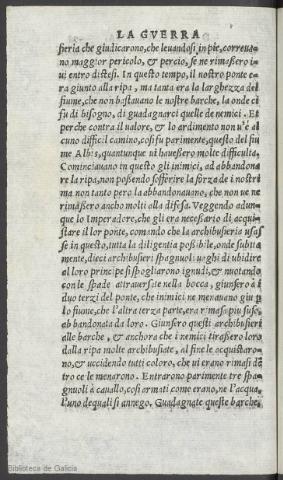 LA GVERRA
fieria che giudicarono, che leuandosi in pie, correuano
no maggior pericolo, & percio, se ne rimasero in
ui entro distesi. In questo tempo, il nostro ponte e-
ra giunto alla ripa, ma tanta era la larghezza del
fiume, che non bastauano le nostre barche, la onde ci
fu di bisogno, di guadagnarci quelle de nemici. Et
perche contra il ualore, & lo ardimento non u'è al
cuno difficil camino, cosi fu parimente, questo del fiu
me Albis, quantunque ui hauessero molte difficultà.
Cominciauano in questo gli inimici, ad abbandona
re la ripa, non possendo sofferire la forza de i nostri
ma non tanto pero la abbandonauano, che non ue ne
rimasero ancho molti alla difesa. Veggendo adun-
que lo Imperadore, che gli era necessario di acqui
stare il lor ponte, comando che la archibuseria usas
se in questo, tutta la diligentia possibile, onde subita
mente, dieci archibusieri spagnuoli uaghi di ubidire
al loro principe si spogliarono ignudi, & nuotando
con le spade attrauersate nella bocca, giunsero a i
duo terzi del ponte, che inimici ne menauano giu p
lo fiume, che l'altra terza parte, era rimasa piu suso,
abbandonata da loro. Giunsero questi archibusieri
alle barche, & anchora che i nemici tirassero loro
dalla ripa molte archibusate, al fine le acquistaro-
no, & uccidendo tutti coloro, che ui erano rimasi dē
tro ce le menarono. Entrarono parimente tre spa-
gnuoli à cauallo, cosi armati come erano, ne l'acqua,
l'uno de quali si annego. Guadagnate queste barche,
Biblioteca de Galicia